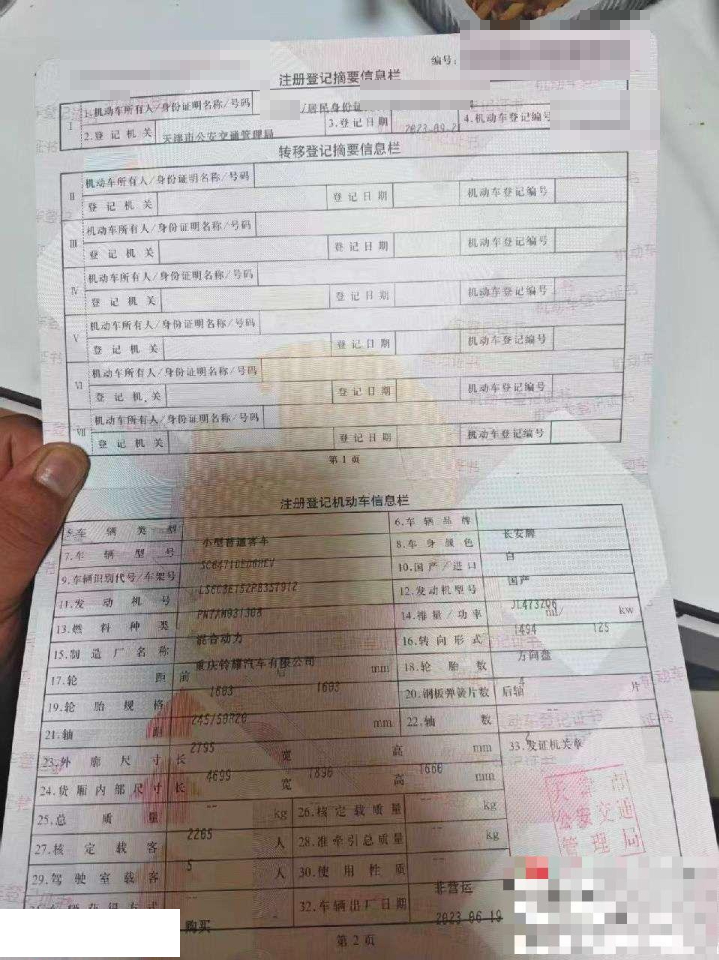 编号:
注册登记摘要信息栏
I
1.机动车所有人/身份证明名称/号码 /居民身份证
2.登记机关 天津市公安交通管理局 3.登记日期 2023.09.2 4.机动车登记编号
转移登记摘要信息栏
II 机动车所有人/身份证明名称/号码
登记机关 登记日期 机动车登记编号
III 机动车所有人/身份证明名称/号码
登记机关 登记日期 机动车登记编号
IV 机动车所有人/身份证明名称/号码
登记机关 登记日期 机动车登记编号
V 机动车所有人/身份证明名称/号码
登记机关 登记日期 机动车登记编号
VI 机动车所有人/身份证明名称/号码
登记机关 登记日期 机动车登记编号
VII 机动车所有人/身份证明名称/号码
登记机关 登记日期 机动车登记编号
第1页
注册登记机动车信息栏
5.车辆类型 小型普通客车 6.车辆品牌 长安牌
7.车辆型号 8.车身颜色 白
9.车辆识别代号/车架号 10.国产/进口 国产
11.发动机号 12.发动机型号 JL473ZQ6
13.燃料种类 混合动力 14.排量/功率 1494 ml/ 125 kw
15.制造厂名称 重庆铃耀汽车有限公司 16.转向形式 方向盘
17.轮距 前 1603 1603 mm 18.轮胎数 4
19.轮胎规格 20.钢板弹簧片数 后轴 片
21.轴距 2795 mm 22.轴数 2
23.外廓尺寸 长 4699 宽 1896 高 1666 mm 33.发证机关章
24.货厢内部尺寸 长 -- 宽 -- 高 -- mm
25.总质量 2265 kg 26.核定载质量 -- kg
27.核定载客 5 人 28.准牵引总质量 -- kg
29.驾驶室载客 -- 人 30.使用性质 非营运
购买 32.车辆出厂日期 2023 06 19
天津市
公安交通
管理局
第2页